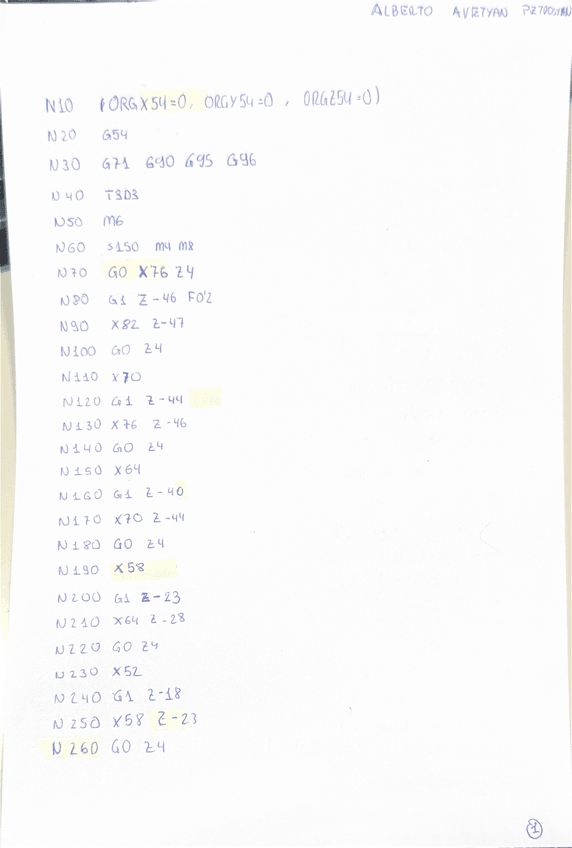 ALBERTO AVETYAN PETROSYAN
N10 (ORGX54=0, ORGY54=0, ORGZ54=0)
N20 G54
N30 G71 G90 G95 G96
N40 T3D3
N50 M6
N60 S150 M4 M8
N70 G0 X76 Z4
N80 G1 Z-46 F0'2
N90 X82 Z-47
N100 G0 Z4
N110 X70
N120 G1 Z-44
N130 X76 Z-46
N140 G0 Z4
N150 X64
N160 G1 Z-40
N170 X70 Z-44
N180 G0 Z4
N190 X58
N200 G1 Z-23
N210 X64 Z-28
N220 G0 Z4
N230 X52
N240 G1 Z-18
N250 X58 Z-23
N260 G0 Z4
1